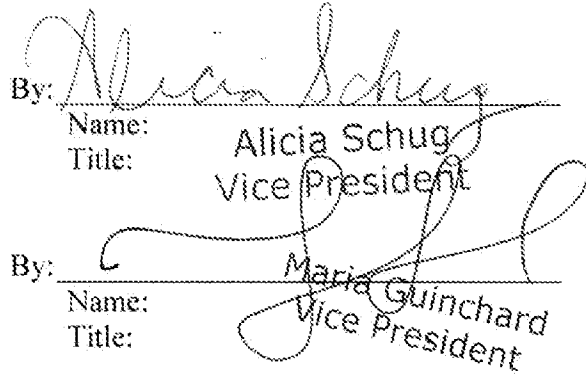 By: Alicia Schug
Name:
Alicia Schug
Title:
Vice President
By:
Maria Guinchard
Name:
Vice President
Title: